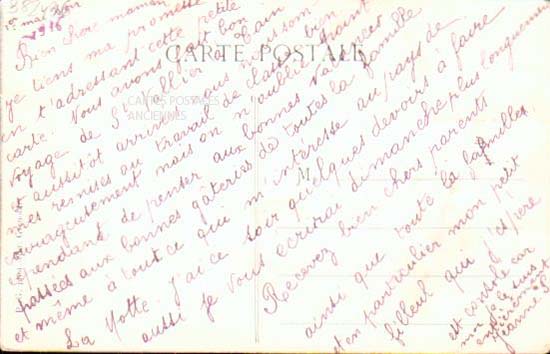 1er mai
1916
Bien chère maman
je tiens ma promesse
en t'adressant cette petite
carte. Nous avons fait bon
voyage de St Vallier à
et aussitôt arrivées nous nous som-
mes remises au travail de classe bien
courageusement mais on n'oublie point
cependant de penser aux bonnes vacances
passées aux bonnes gâteries de toutes la famille
et même à tout ce qui m'intéresse au pays de
La Motte. J'ai ce soir quelques devoirs à faire
aussi je vous écrirai dimanche plus longuement
Recevez bien chers parents
ainsi que toute la famille,
et en particulier mon petit
filleul qui j'espère
est consolé car
je suis
Jeanne
CARTE POSTALE
CARTES POSTALES
ANCIENNES